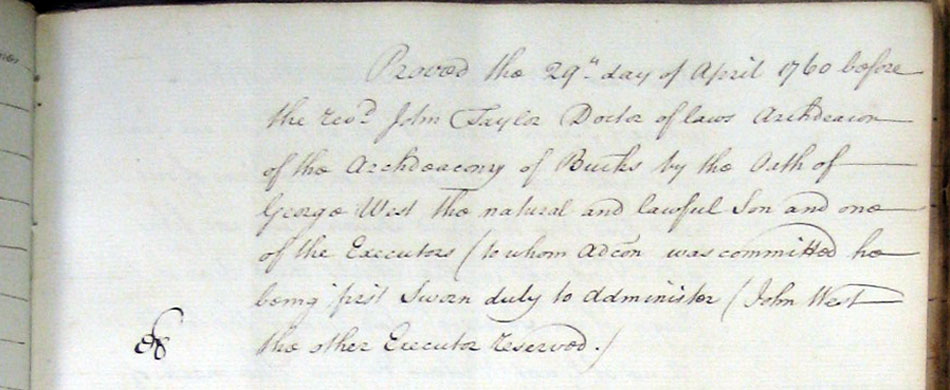 Proved the 29th day of April 1760 before
the revd. John Taylor Doctor of laws Archdeacon
of the Archdeaconry of Bucks by the Oath of
George West the natural and lawful Son and one
of the Executors / to whom adcõn was committed he
being first Sworn duly to administer / John West
the other Executor reserved. /